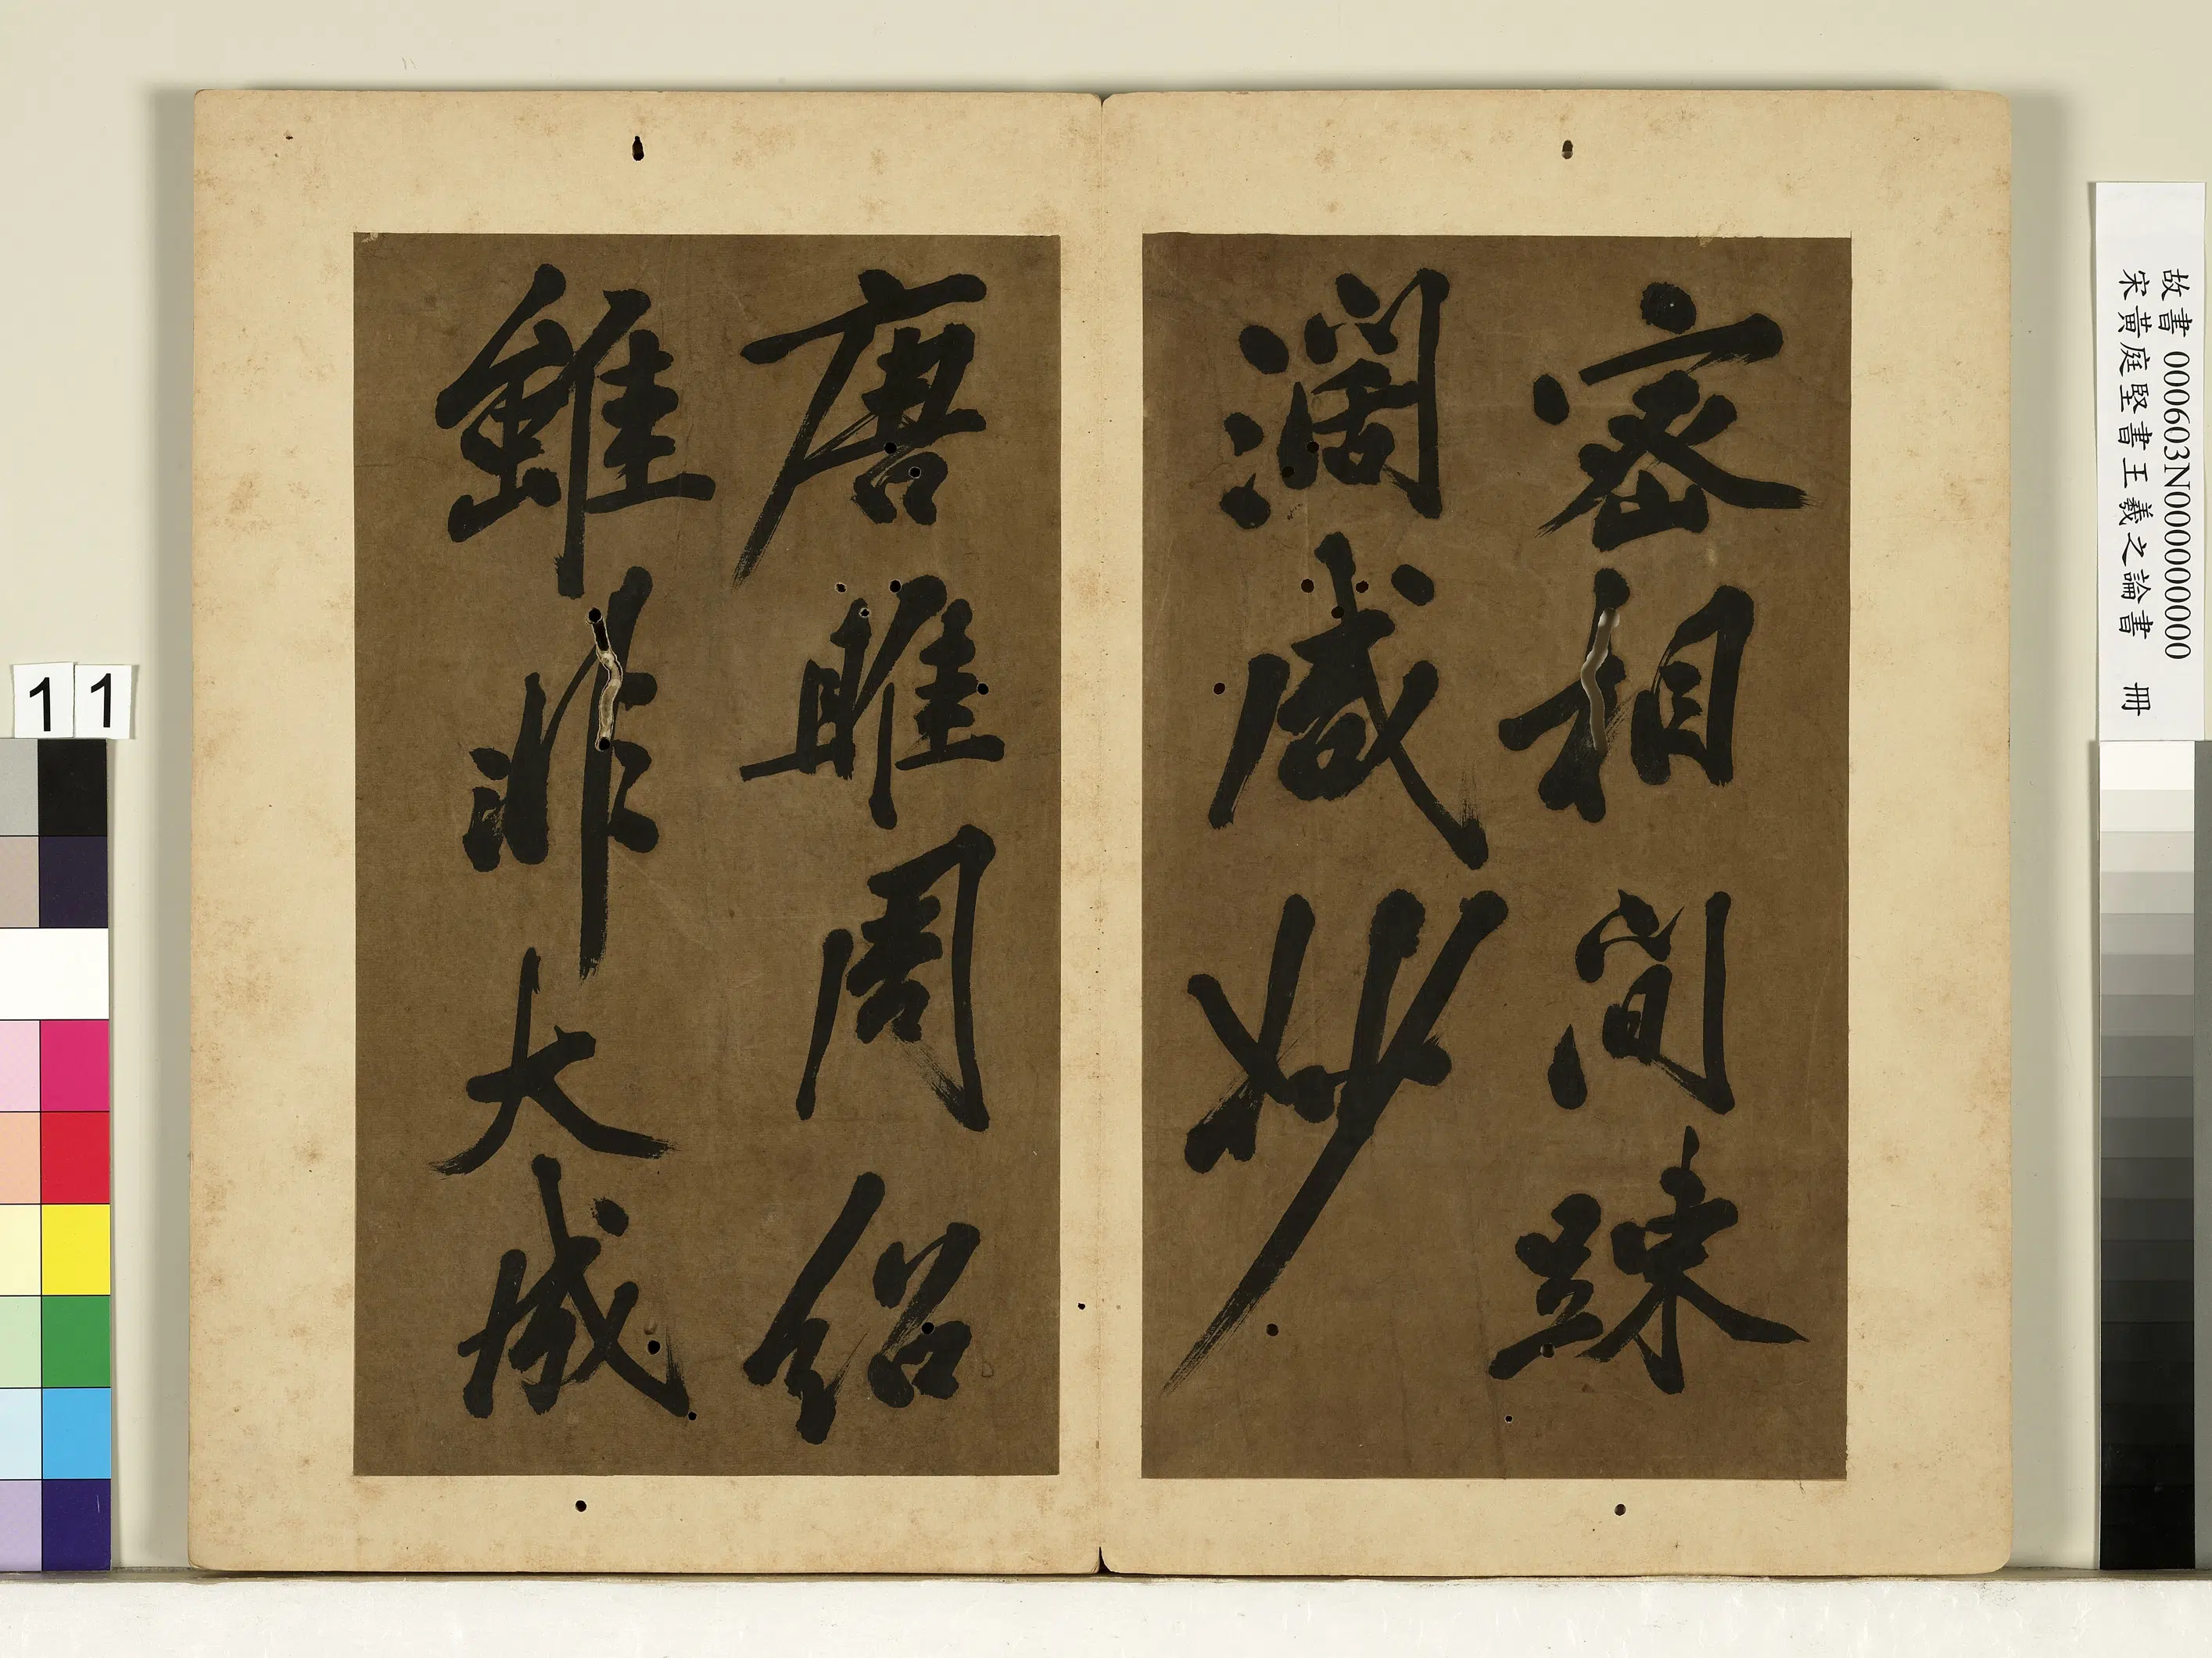 密相間踈
濶咸妙
唐雎周紹
雖非大成
故書 000603N000000000
宋黃庭堅書王羲之論書 冊
11